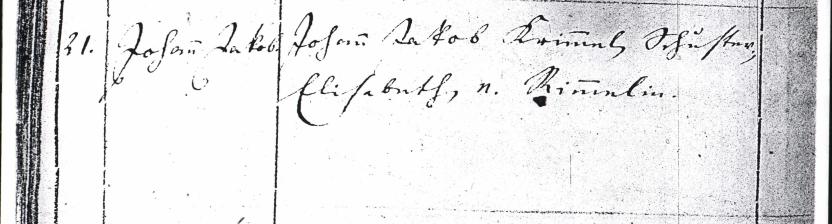 21. Johann̅ Jakob Johann̅ Jakob Krim̅el, Schuster,
Elisabeth, n. Rim̅elin.